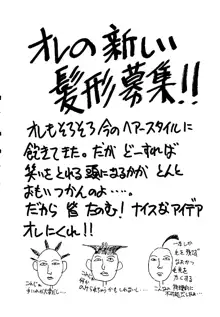 オレの新しい
髪形募集!!
オレもそろそろ今のヘアースタイルに
飽きてきた。だが どーすれば
笑いをとれる頭になるかが とんと
おもいつかんのよ・・・・。
だから 皆 たのむ! ナイスなアイデア
オレにくれ!!